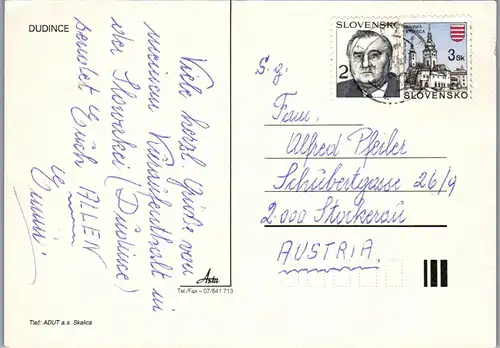 DUDINCE
Viele herzl. Grüße von
meinem Kuraufenthalt in
der Slowakei (Dudince)
sendet Euch ALLEN
Asta
Tel./Fax – 07/841 713
Tlač: ADUT a.s. Skalica
SLOVENSKO
2
BANSKÁ BYSTRICA
3 Sk
SLOVENSKO
S. g.
Fam.
Alfred Pfeiler
Schubertgasse 26/9
2.000 Stockerau
AUSTRIA